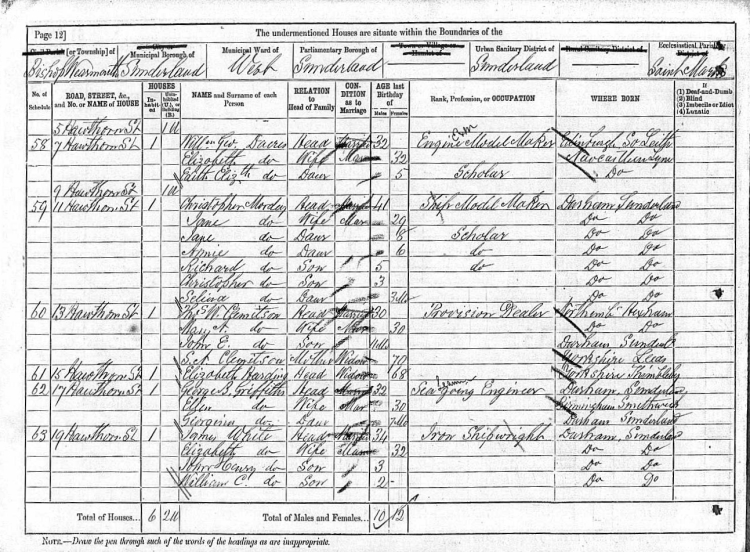 Page 12]
The undermentioned Houses are situate within the Boundaries of the
Civil Parish [or Township] of
City or Municipal Borough of
Municipal Ward of
Parliamentary Borough of
Town or Village or Hamlet of
Urban Sanitary District of
Rural Sanitary District of
Ecclesiastical Parish or District of
Bishop Wearmouth Sunderland West Sunderland Sunderland Saint Marks
No. of Schedule
ROAD, STREET, &c., and No. or NAME of HOUSE
HOUSES
Inhabited
Uninhabited (U.), or Building (B.)
NAME and Surname of each Person
RELATION to Head of Family
CONDITION as to Marriage
AGE last Birthday of
Males Females
Rank, Profession, or OCCUPATION
WHERE BORN
If
(1) Deaf-and-Dumb
(2) Blind
(3) Imbecile or Idiot
(4) Lunatic
5 Hawthorn St 1 U
58 7 Hawthorn St 1 Geo. Dacres Head 32 Engine Model Maker
Elizabeth do Wife Mar 32
Edith Elizth do Daur 5 Scholar Do
9 Hawthorn St 1 U
59 11 Hawthorn St 1 Christopher Head 41 Ship Model Maker Durham, Sunderland
Jane do Wife Mar 29 Do Do
Jane do Daur 8 Scholar Do Do
Annie do Daur 6 do Do Do
Richard do Son 5 do Do Do
Christopher do Son 3 Do Do
Selina do Daur 3 Mo Do Do
60 13 Hawthorn St 1 Thos W. Clemitson Head 30 Provision Dealer Northumb Hexham
Mary A. do Wife 30
John E. do Son 11 Mo Durham Sunderl
Clemitson Mother Widow 70 Yorkshire Leeds
61 15 Hawthorn St 1 Elizabeth Harding Head Widow 68 Yorkshire
62 17 Hawthorn St 1 George S. Griffiths Head 32 Sea Going Engineer Durham, Sunderland
Ellen do Wife Mar 30 Birmingham Smethwick
Georgina do Daur 7 Mo Durham Sunderland
63 19 Hawthorn St 1 James White Head 34 Iron Shipwright Durham, Sunderland
Elizabeth do Wife 32 Do Do
John Henry do Son 3 Do Do
William C. do Son 2 Do Do
Total of Houses... 6 2 U
Total of Males and Females... 10 12
NOTE.—Draw the pen through such of the words of the headings as are inappropriate.